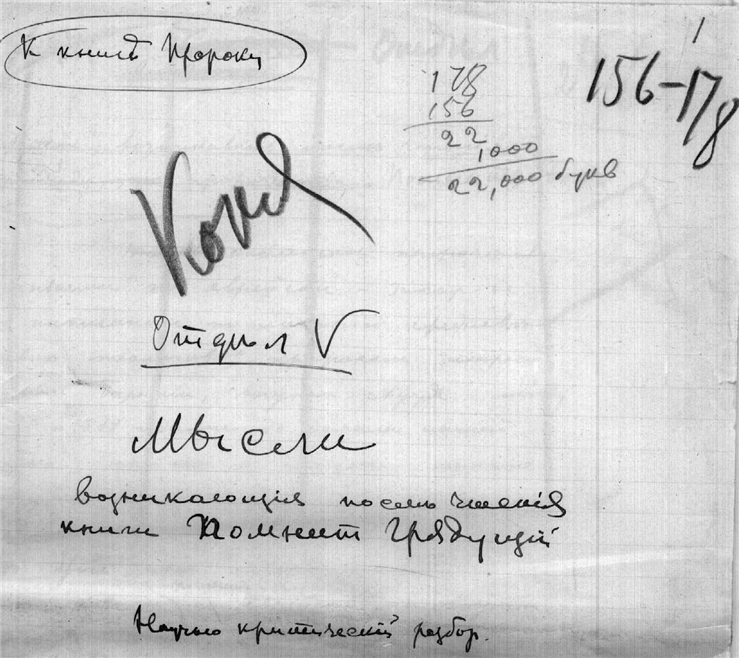 К книгѣ Пророки
1
156-178
178
156
22
1000
22,000 букв
Копия
Отдѣл V
Мысли
возникающія послѣ чтенія
книги Комнит Грядущій
Научно критический разбор.